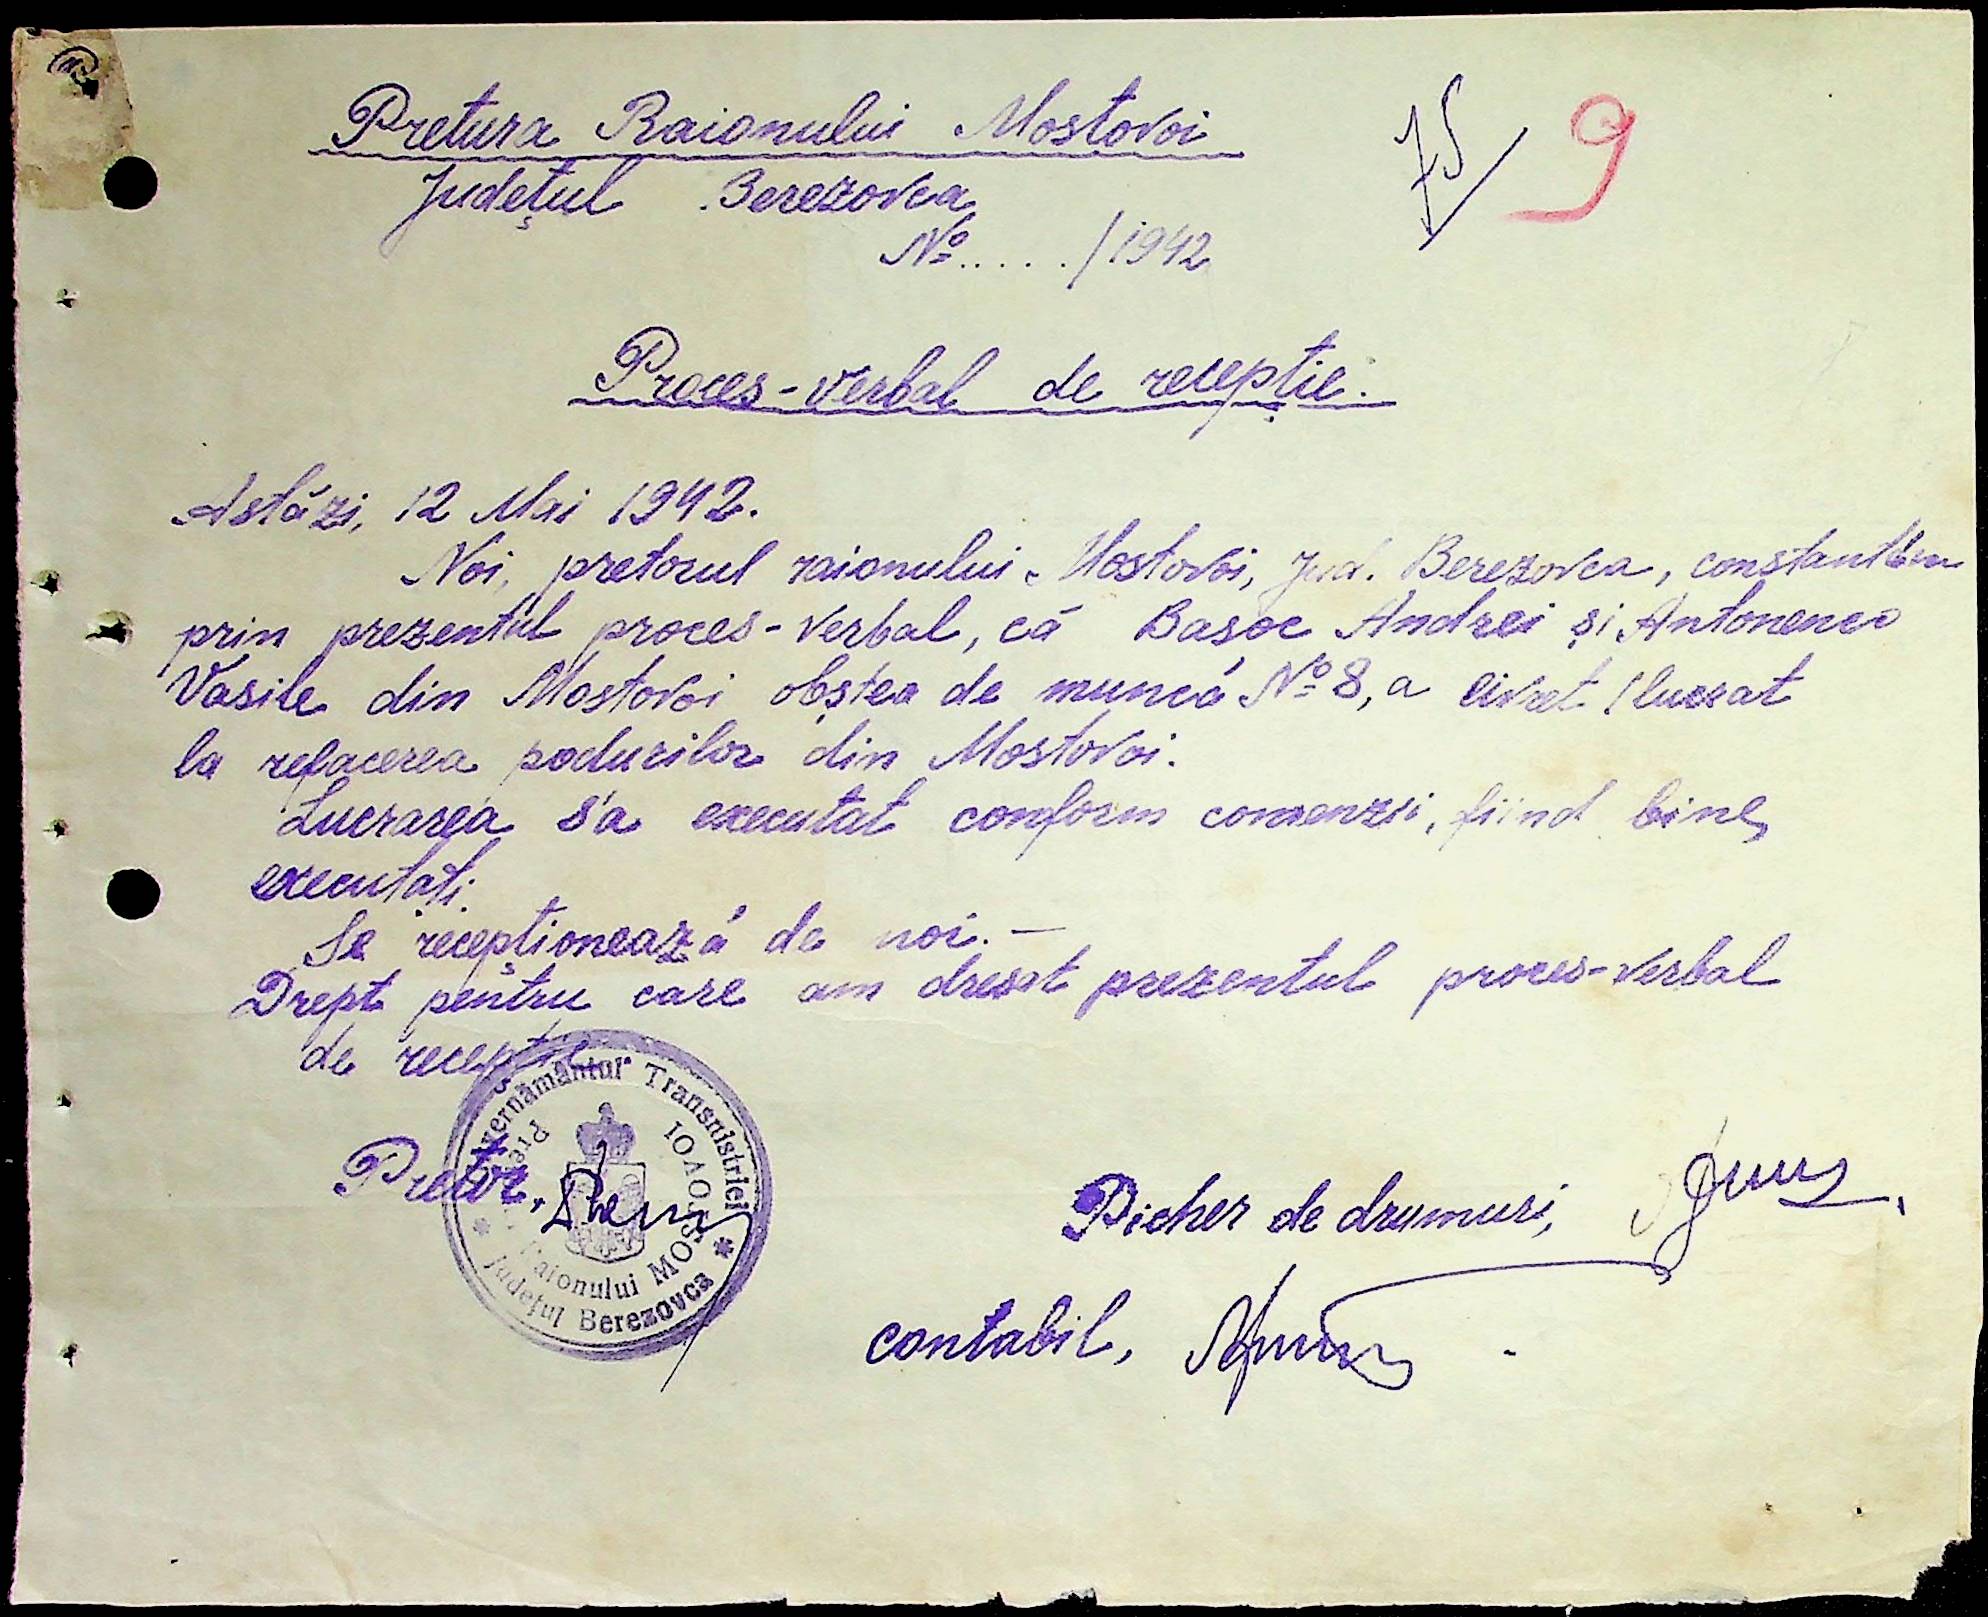 Pretura Raionului Mostovoi
75
9
Județul Berezovca
Nº...../1942
Proces-verbal de recepție.
Astăzi, 12 Mai 1942.
Noi, pretorul raionului Mostovoi, Jud. Berezovca, constantăm
prin prezentul proces-verbal, că Bașoc Andrei și Antonenco
Vasile din Mostovoi obștea de muncă Nº 8, a livrat / lucrat
la refacerea podurilor din Mostovoi.
Lucrarea s'a executat conform comenzii, fiind bine
executați.
Se recepționează de noi. —
Drept pentru care am dresat prezentul proces-verbal
de recepție
Guvernământul Transnistriei
Pretura Raionului MOSTOVOI
Județul Berezovca
Pretor,
Picher de drumuri,
contabil,